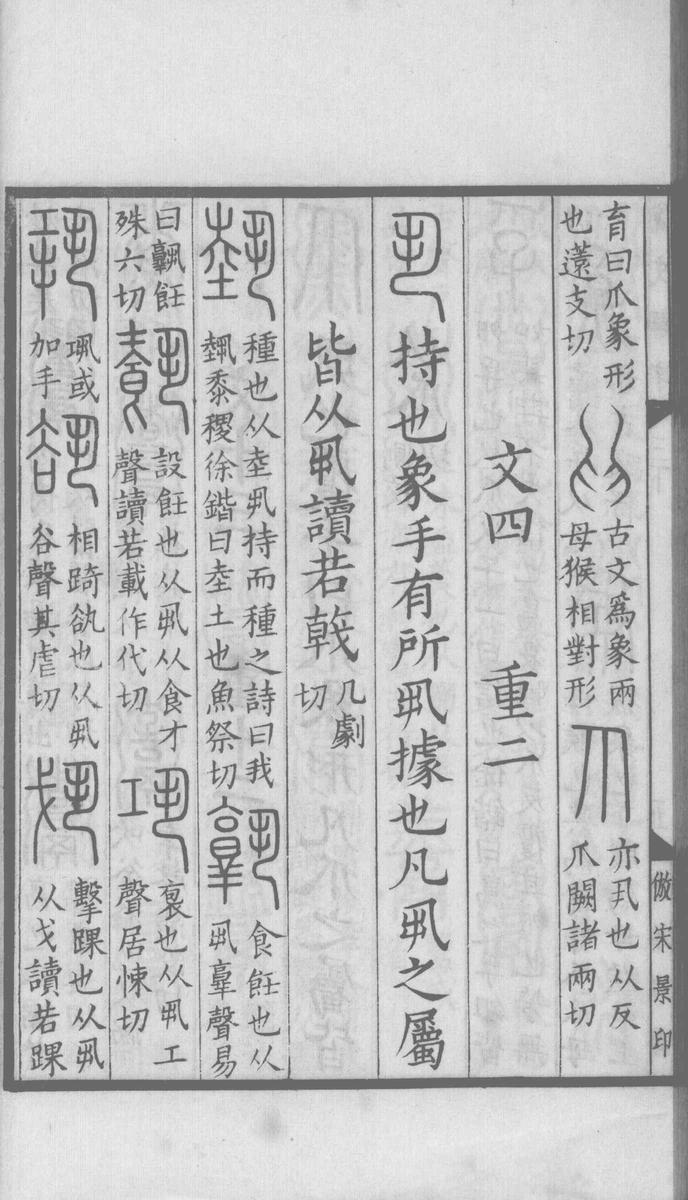 育曰爪象形
也薳支切
古文爲象兩
母猴相對形
𤓯
亦丮也从反
爪闕諸兩切
文四　重二
丮
持也象手有所丮據也凡丮之屬
皆从丮讀若㦸
几劇
切
埶
種也从坴丮持而種之詩曰我
埶黍稷徐鍇曰坴土也魚祭切
𩰫
食飪也从
丮𦎫聲易
曰𩰫飪
殊六切
𩛥
設飪也从丮从食才
聲讀若載作代切
巩
褱也从丮工
聲居悚切
𢀜
巩或
加手
相踦㕁也从丮
谷聲其虐切
擊踝也从丮
从戈讀若踝
倣宋景印